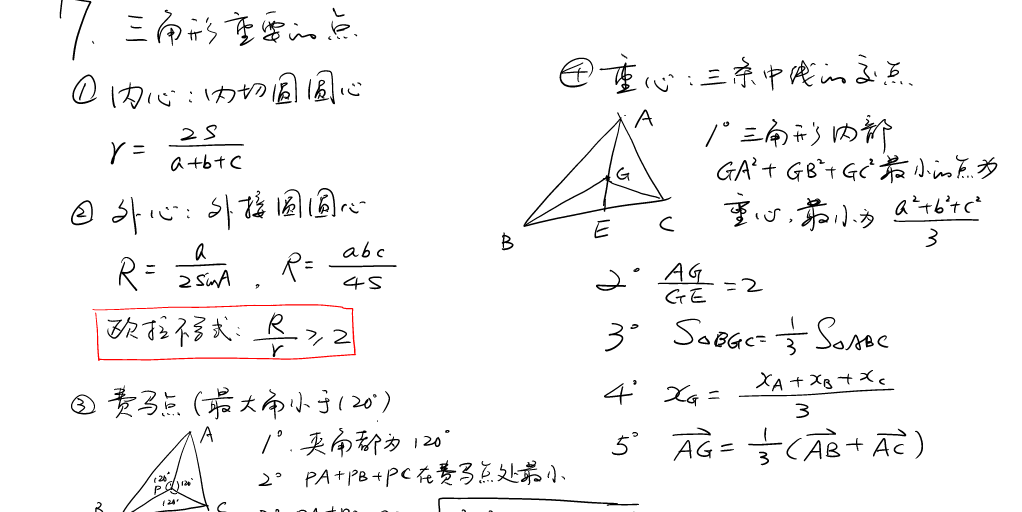 7. 三角形重要的点
① 内心：内切圆圆心
r = 2S / (a+b+c)
② 外心：外接圆圆心
R = a / 2sinA , R = abc / 4S
欧拉不等式: R / r ≥ 2
③ 费马点 (最大角小于120°)
A
P
120° 120°
120°
B C
1°. 夹角都为120°
2° PA+PB+PC在费马点处最小.
④ 重心：三条中线的交点
A
G
B E C
1° 三角形内部
GA²+GB²+GC²最小的点为
重心, 最小为 (a²+b²+c²) / 3
2° AG / GE = 2
3° S△BGC = 1/3 S△ABC
4° x_G = (x_A + x_B + x_C) / 3
5° \overrightarrow{AG} = 1/3 (\overrightarrow{AB} + \overrightarrow{AC})